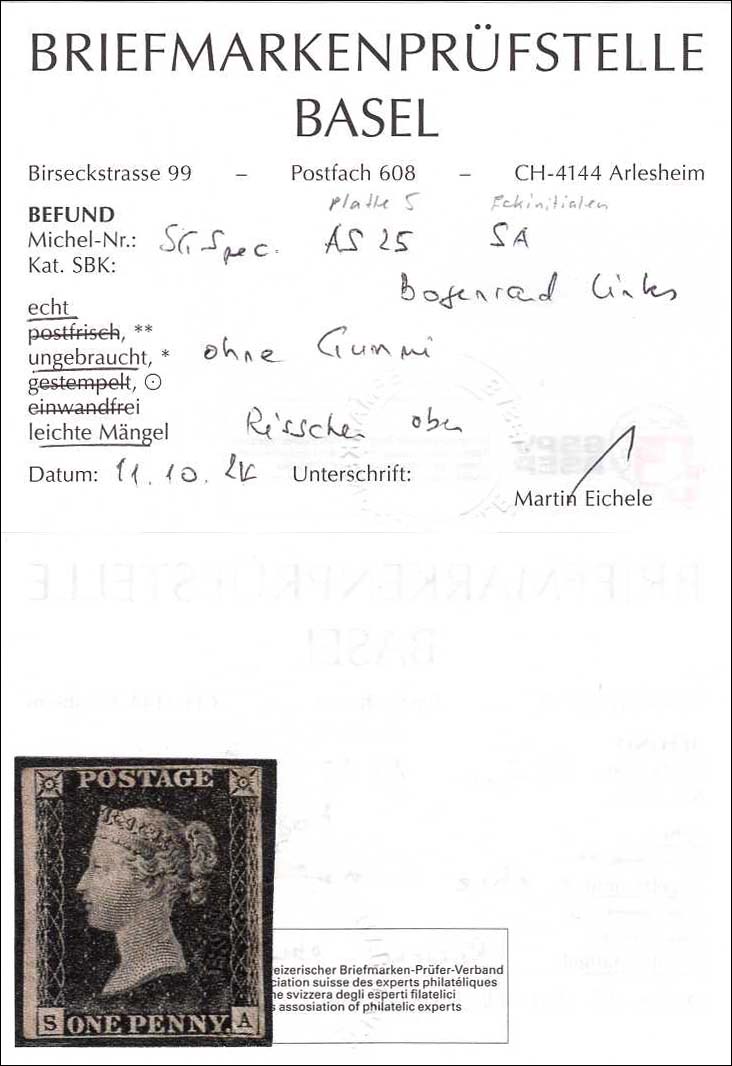 BRIEFMARKENPRÜFSTELLE
BASEL
Birseckstrasse 99 – Postfach 608 – CH-4144 Arlesheim
Platte 5 Eckinitialen
BEFUND
Michel-Nr.: SG Spec. AS 25 SA
Kat. SBK:
Bogenrand links
echt
postfrisch, **
ungebraucht, * ohne Gummi
gestempelt, ⊙
einwandfrei
leichte Mängel Risschen oben
Datum: 11.10. Unterschrift:
Martin Eichele
POSTAGE
S ONE PENNY. A
eizerischer Briefmarken-Prüfer-Verband
ciation suisse des experts philatéliques
ne svizzera degli esperti filatelici
s assosiation of philatelic experts